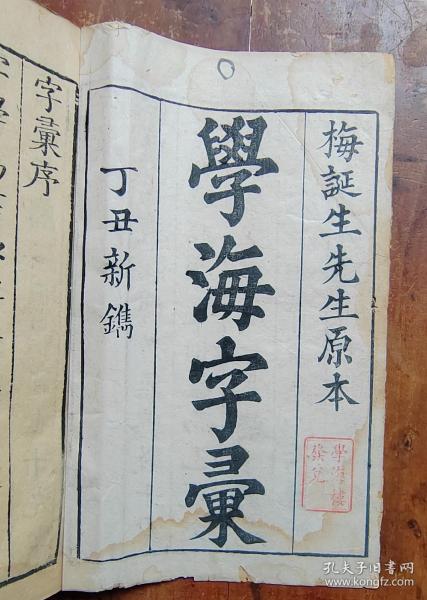 梅誕生先生原本
學海字彙
丁丑新鐫
學海樓
發兌
字彙序
孔夫子旧书网
www.kongfz.com